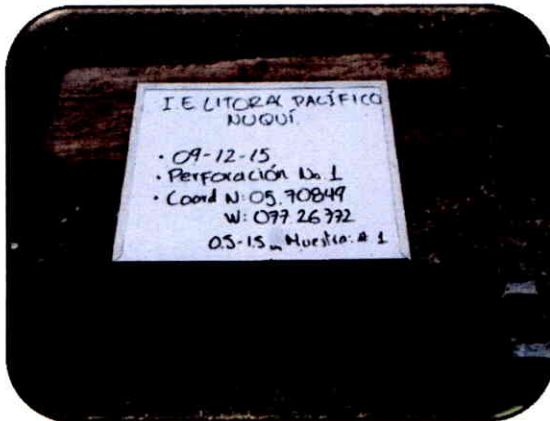 I E LITORAL PACÍFICO
NUQUÍ.
• 09-12-15
• Perforación No. 1
• Coord N: 05.70849
W: 077.26772
0.5-1.5 m Muestra: # 1